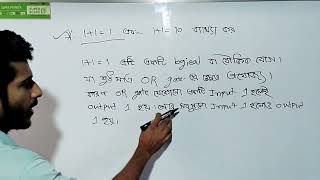 1+1=1 এবং 1+1=10 ব্যাখ্যা কর
1+1=1 এটি একটি logical বা যৌক্তিক যোগ।
যা শুধুমাত্র OR gate এর ক্ষেত্রে প্রযোজ্য।
কারণ OR gate যেকোনো একটি Input 1 হলেই
output 1 হয়। আর সবগুলো Input 1 হলেও output
1 হয়।